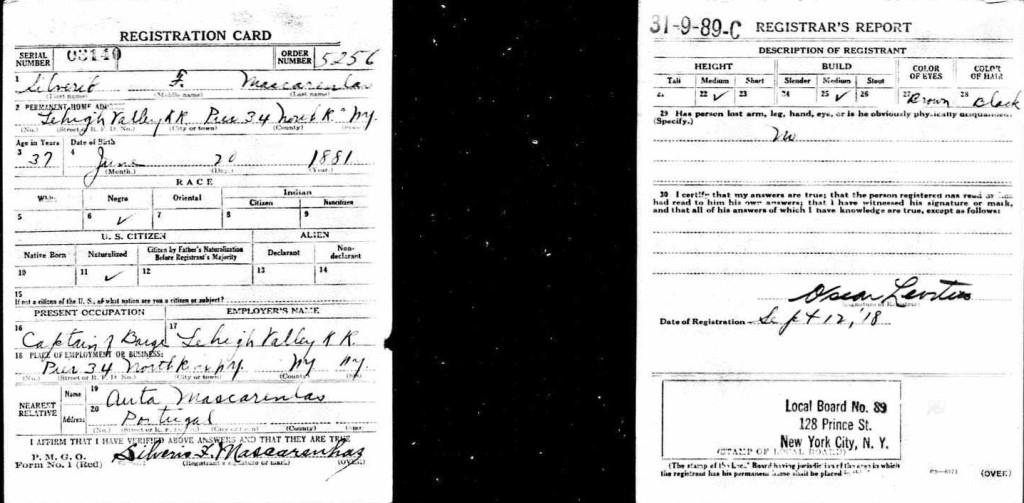 REGISTRATION CARD
SERIAL NUMBER 03140 ORDER NUMBER 5256
1 Silverio F. Mascarenhas
(First name) (Middle name) (Last name)
2 PERMANENT HOME ADDRESS
Lehigh Valley RR Pier 34 North R NY.
(No.) (Street or R. F. D. No.) (City or town) (County) (State)
Age in Years Date of Birth
3 37 4 June 20 1881
(Month.) (Day.) (Year.)
RACE
White Negro Oriental Indian
Citizen Noncitizen
5 6 ✓ 7 8 9
U. S. CITIZEN ALIEN
Native Born Naturalized Citizen by Father's Naturalization Before Registrant's Majority Declarant Non-declarant
10 11 ✓ 12 13 14
15
If not a citizen of the U. S., of what nation are you a citizen or subject?
PRESENT OCCUPATION EMPLOYER'S NAME
16 Captain of Barge 17 Lehigh Valley RR
18 PLACE OF EMPLOYMENT OR BUSINESS:
Pier 34 North R NY. NY NY.
(No.) (Street or R. F. D. No.) (City or town) (County) (State)
NEAREST RELATIVE Name 19 Mascarenhas
Address 20 Portugal
(No.) (Street or R. F. D. No.) (City or town) (County) (State)
I AFFIRM THAT I HAVE VERIFIED ABOVE ANSWERS AND THAT THEY ARE TRUE
P. M. G. O.
Form No. 1 (Red) Silverio F. Mascarenhas
(Registrant's signature or mark) (OVER)
31-9-89-C REGISTRAR'S REPORT
DESCRIPTION OF REGISTRANT
HEIGHT BUILD COLOR OF EYES COLOR OF HAIR
Tall Medium Short Slender Medium Stout
21 22 ✓ 23 24 25 ✓ 26 27 Brown 28 Black
29 Has person lost arm, leg, hand, eye, or is he obviously physically disqualified?
(Specify.) No
30 I certify that my answers are true; that the person registered has read or has
had read to him his own answers; that I have witnessed his signature or mark,
and that all of his answers of which I have knowledge are true, except as follows:
Oscar
(Signature of Registrar)
Date of Registration Sept 12, '18
Local Board No. 89
128 Prince St.
New York City, N. Y.
(STAMP OF LOCAL BOARD)
(The stamp of the Local Board having jurisdiction of the area in which
the registrant has his permanent home shall be placed
(OVER)